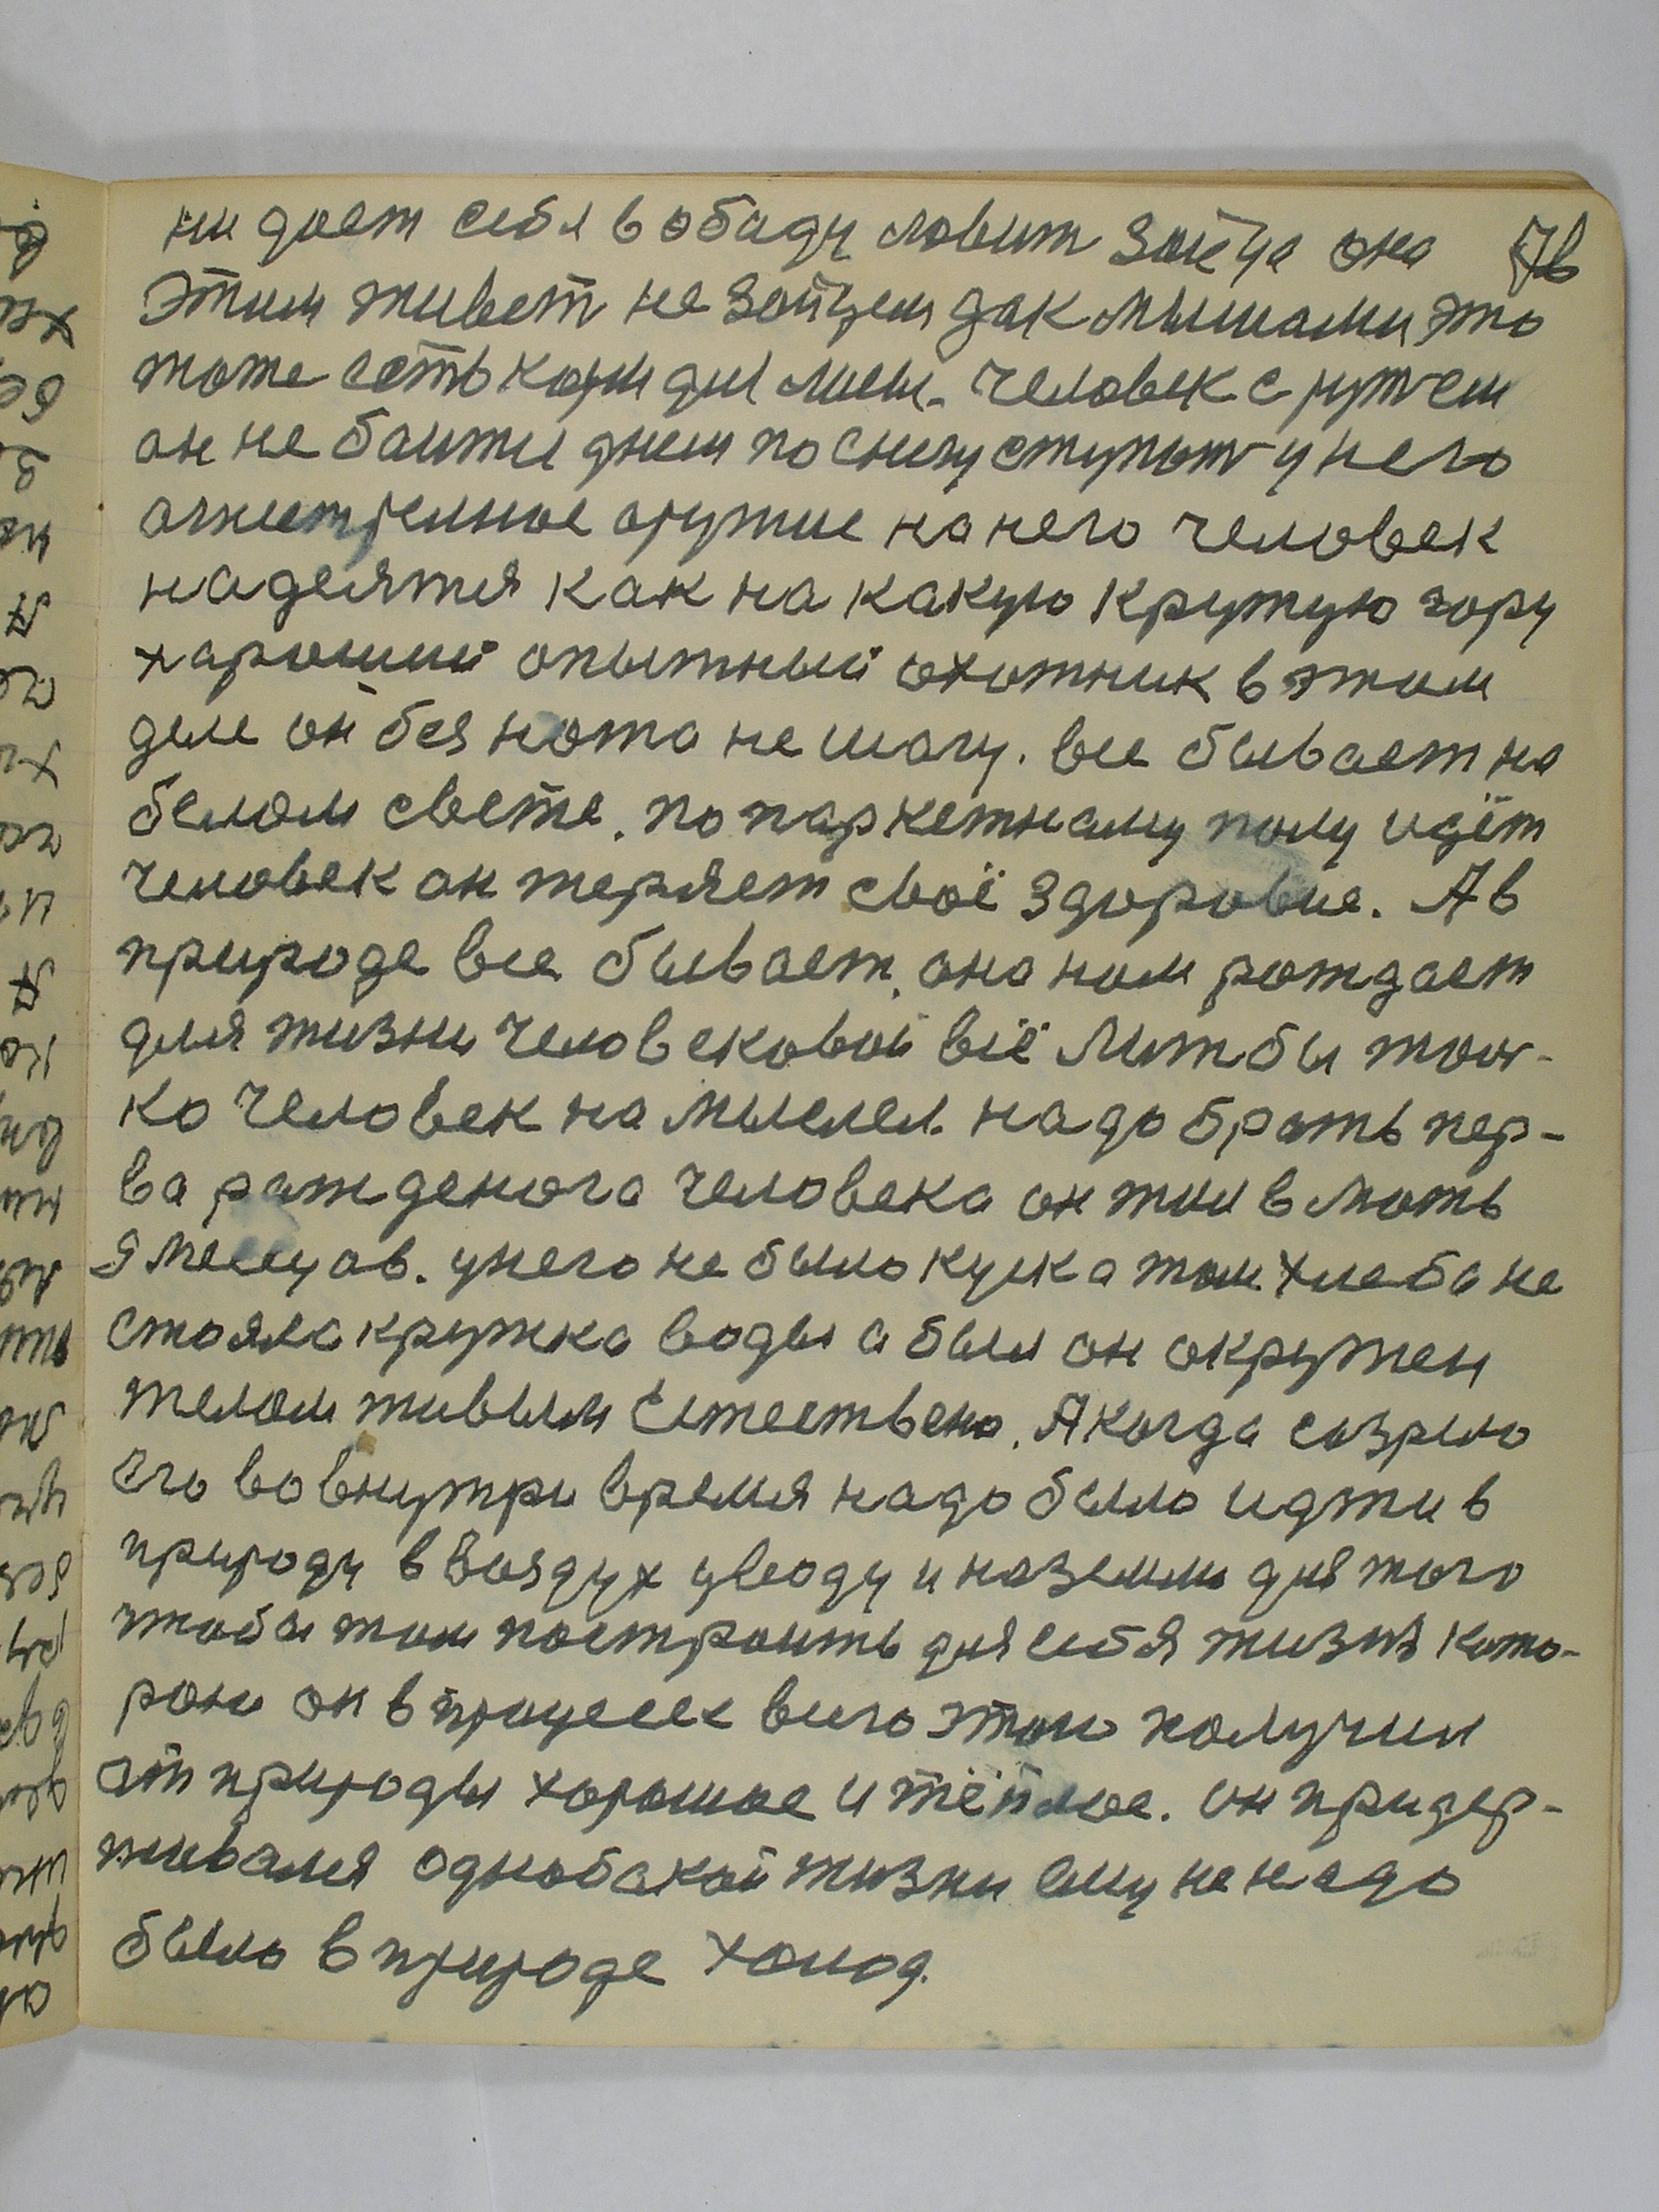 ни дает себя в обаду ловит зайца она 7в
этим живет не зайцем дак мышами это
тоже есть корм для лисы. человек с ружем
он не баится днем по снегу ступает у него
огнестрелное оружие на него человек
надеятся как на какую крутую гору
харошии опытныи охотник в этом
деле он без ножа не шагу. все бывает на
белом свете. по паркетнаму полу идёт
человек он теряет своё здоровие. А в
природе все бывает. она нам рождает
для жизни человековои всё Лиж бы тол-
ко человек на мыслел. надо брать пер-
ва ражденога человека он жил в мать
у него не было куска там хлеба не
стояла кружка воды а был он окружен
телом живым Естествено. А когда созрело
его во внутри время надо было идти в
природу в Воздух у воду и на землю для того
чтобы там построить для себя жизнь кото-
рои он в процессе всего этаю получил
от природы хорошое и тёплое. он придер-
живался однобакои жизни ему не надо
было в природе холод.